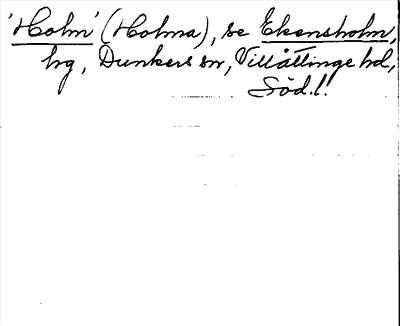 'Holm' (Holma), se Ekensholm,
hg, Dunkers sn, Villåttinge hd,
Söd.l.